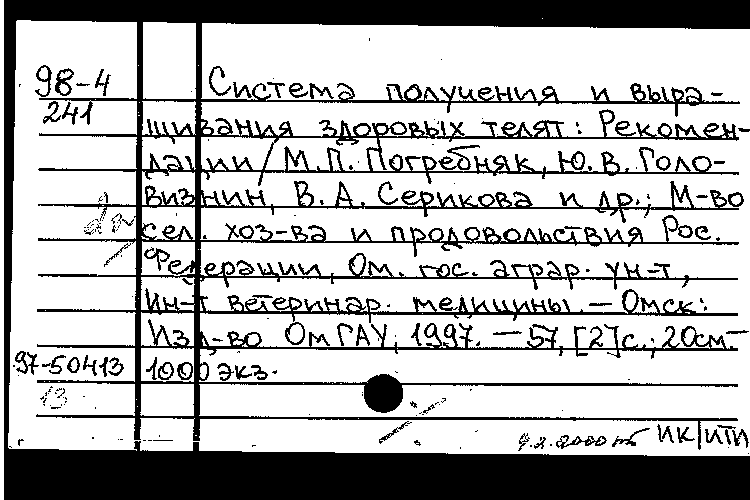 98-4
241
Система получения и выра-
щивания здоровых телят: Рекомен-
дации / М.П. Погребняк, Ю.В. Голо-
визнин, В.А. Серикова и др.; М-во
сел. хоз-ва и продовольствия Рос.
Федерации, Ом. гос. аграр. ун-т,
Ин-т ветеринар. медицины. – Омск:
Изд-во ОмГАУ, 1997. – 57, [2] с.; 20см. –
97-50413 1000 экз.
13
ИК|ИТИ